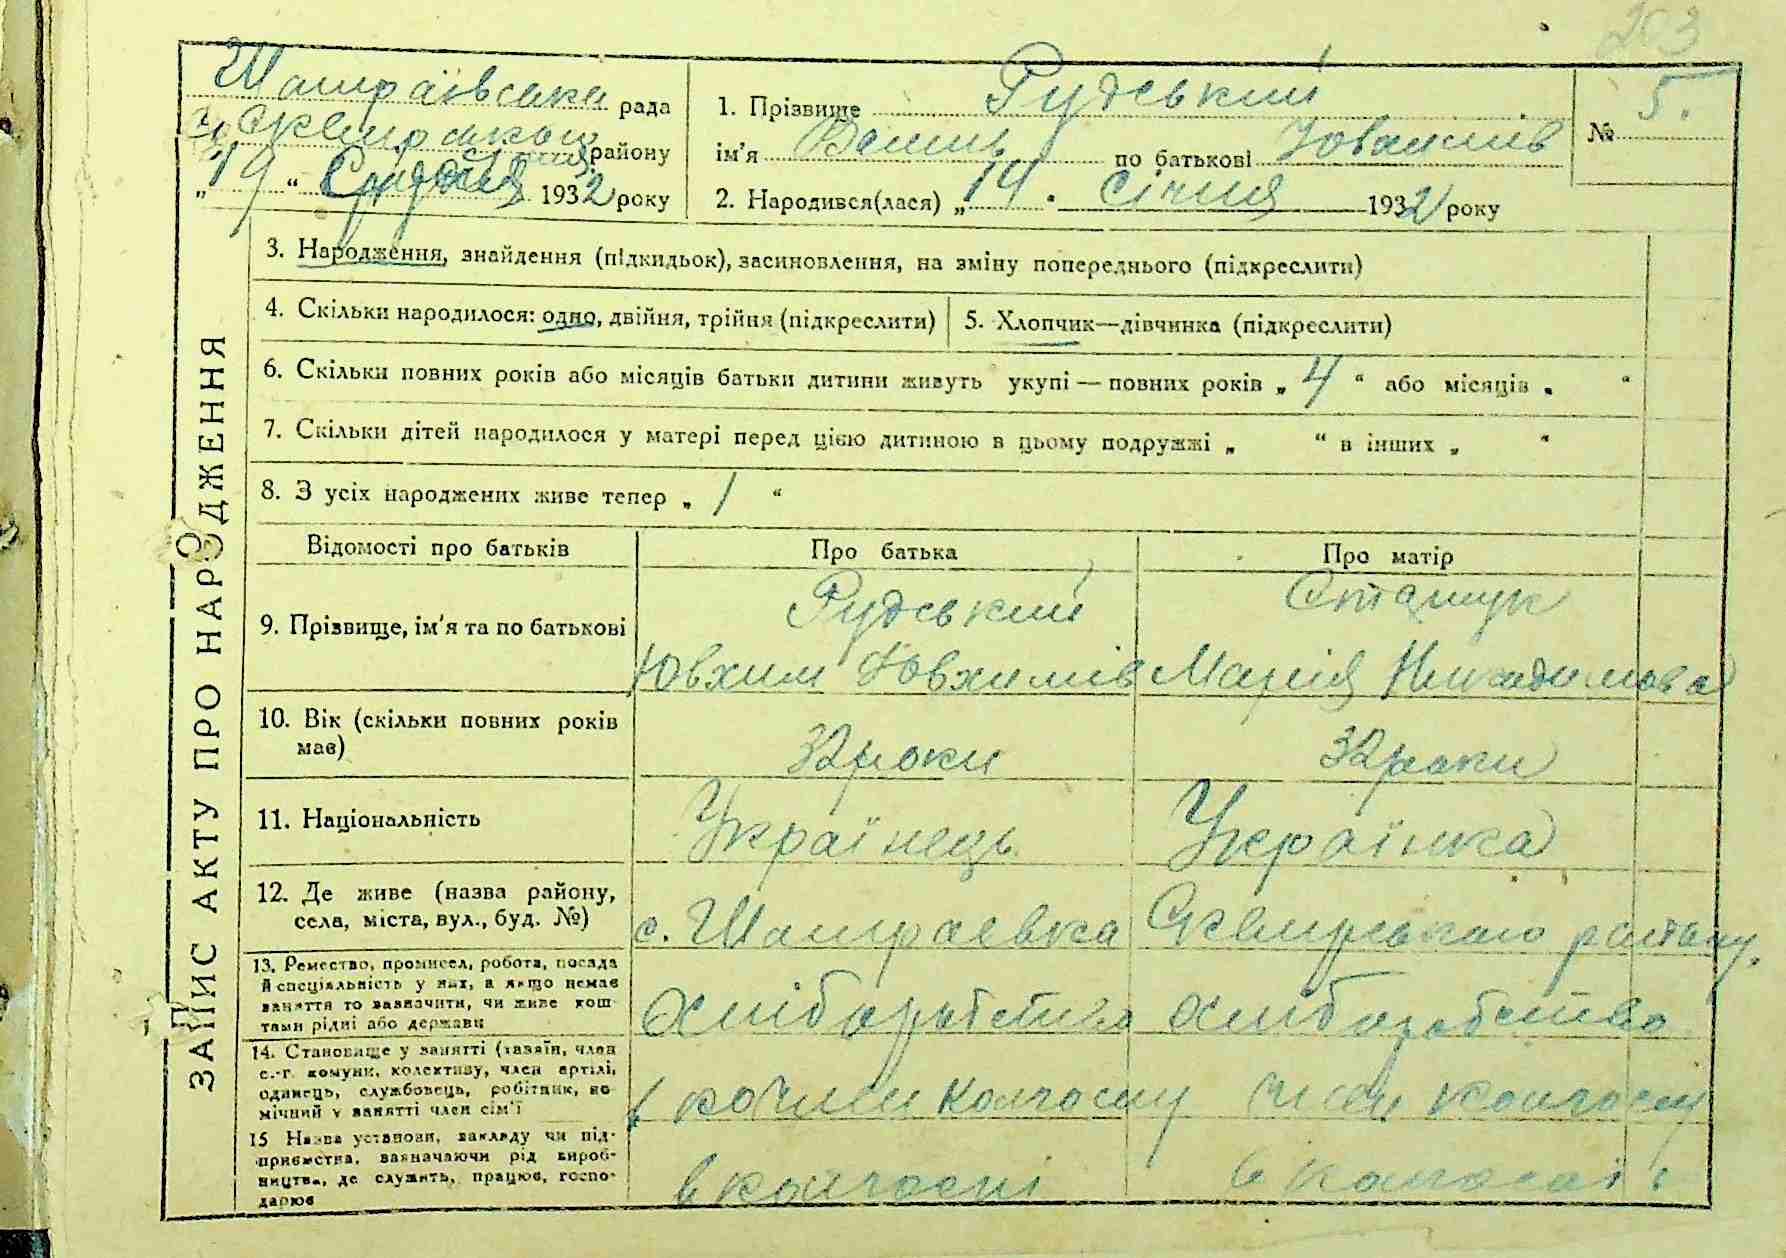 203
Шамраївська рада
Сквирського району
„19“ Січня 1932 року
1. Прізвище Рудський
ім'я Василь по батькові Ювхимів
2. Народився(лася) „14. січня 1932 року
№ 5.
ЗАПИС АКТУ ПРО НАРОДЖЕННЯ
3. Народження, знайдення (підкидьок), засиновлення, на зміну попереднього (підкреслити)
4. Скільки народилося: одно, двійня, трійня (підкреслити)
5. Хлопчик—дівчинка (підкреслити)
6. Скільки повних років або місяців батьки дитини живуть укупі — повних років „4“ або місяців „ “
7. Скільки дітей народилося у матері перед цією дитиною в цьому подружжі „ “ в інших „ “
8. З усіх народжених живе тепер „1“
Відомості про батьків Про батька Про матір
9. Прізвище, ім'я та по батькові
Рудський
Ювхим Ювхимів
Сташук
Марія Никодимова
10. Вік (скільки повних років
має)
32 роки 32 роки
11. Національність Українець Українка
12. Де живе (назва району,
села, міста, вул., буд. №)
с. Шамраевка Сквирського району.
13. Ремество, промисел, робота, посада
й спеціяльність у них, а якщо немає
заняття то зазначити, чи живе кош-
тами рідні або держави
хліборобство хліборобство
14. Становище у занятті (хазяїн, член
с.-г. комуни, колективу, член артілі,
одинець, службовець, робітник, по-
мічний у занятті член сім'ї
колгоспу член колгоспу
15 Назва установи, закладу чи під-
приємства, зазначаючи рід вироб-
ництва, де служить, працює, госпо-
дарює
в колгоспі в колгоспі